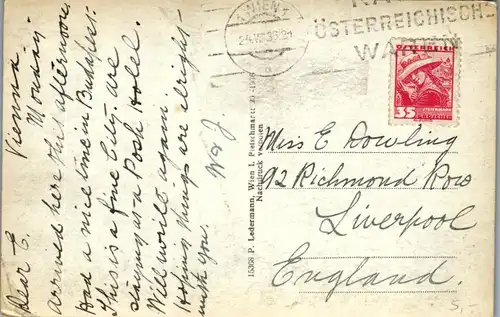 1 WIEN 1
24.VIII.36.21
ÖSTERREICHISCHE
WAREN
ÖSTERREICH
35
Vienna
Monday.
Dear E.
Arrived here this afternoon.
Had a nice time in Budapest:
This is a fine City. are
staying at a Posh Hotel.
Will write again
Hoping things are alright
with you.
J.
15368 P. Ledermann, Wien I, Fleischmarkt
Nachdruck verboten
Miss E Dowling
92 Richmond Row
Liverpool
England.
5,-